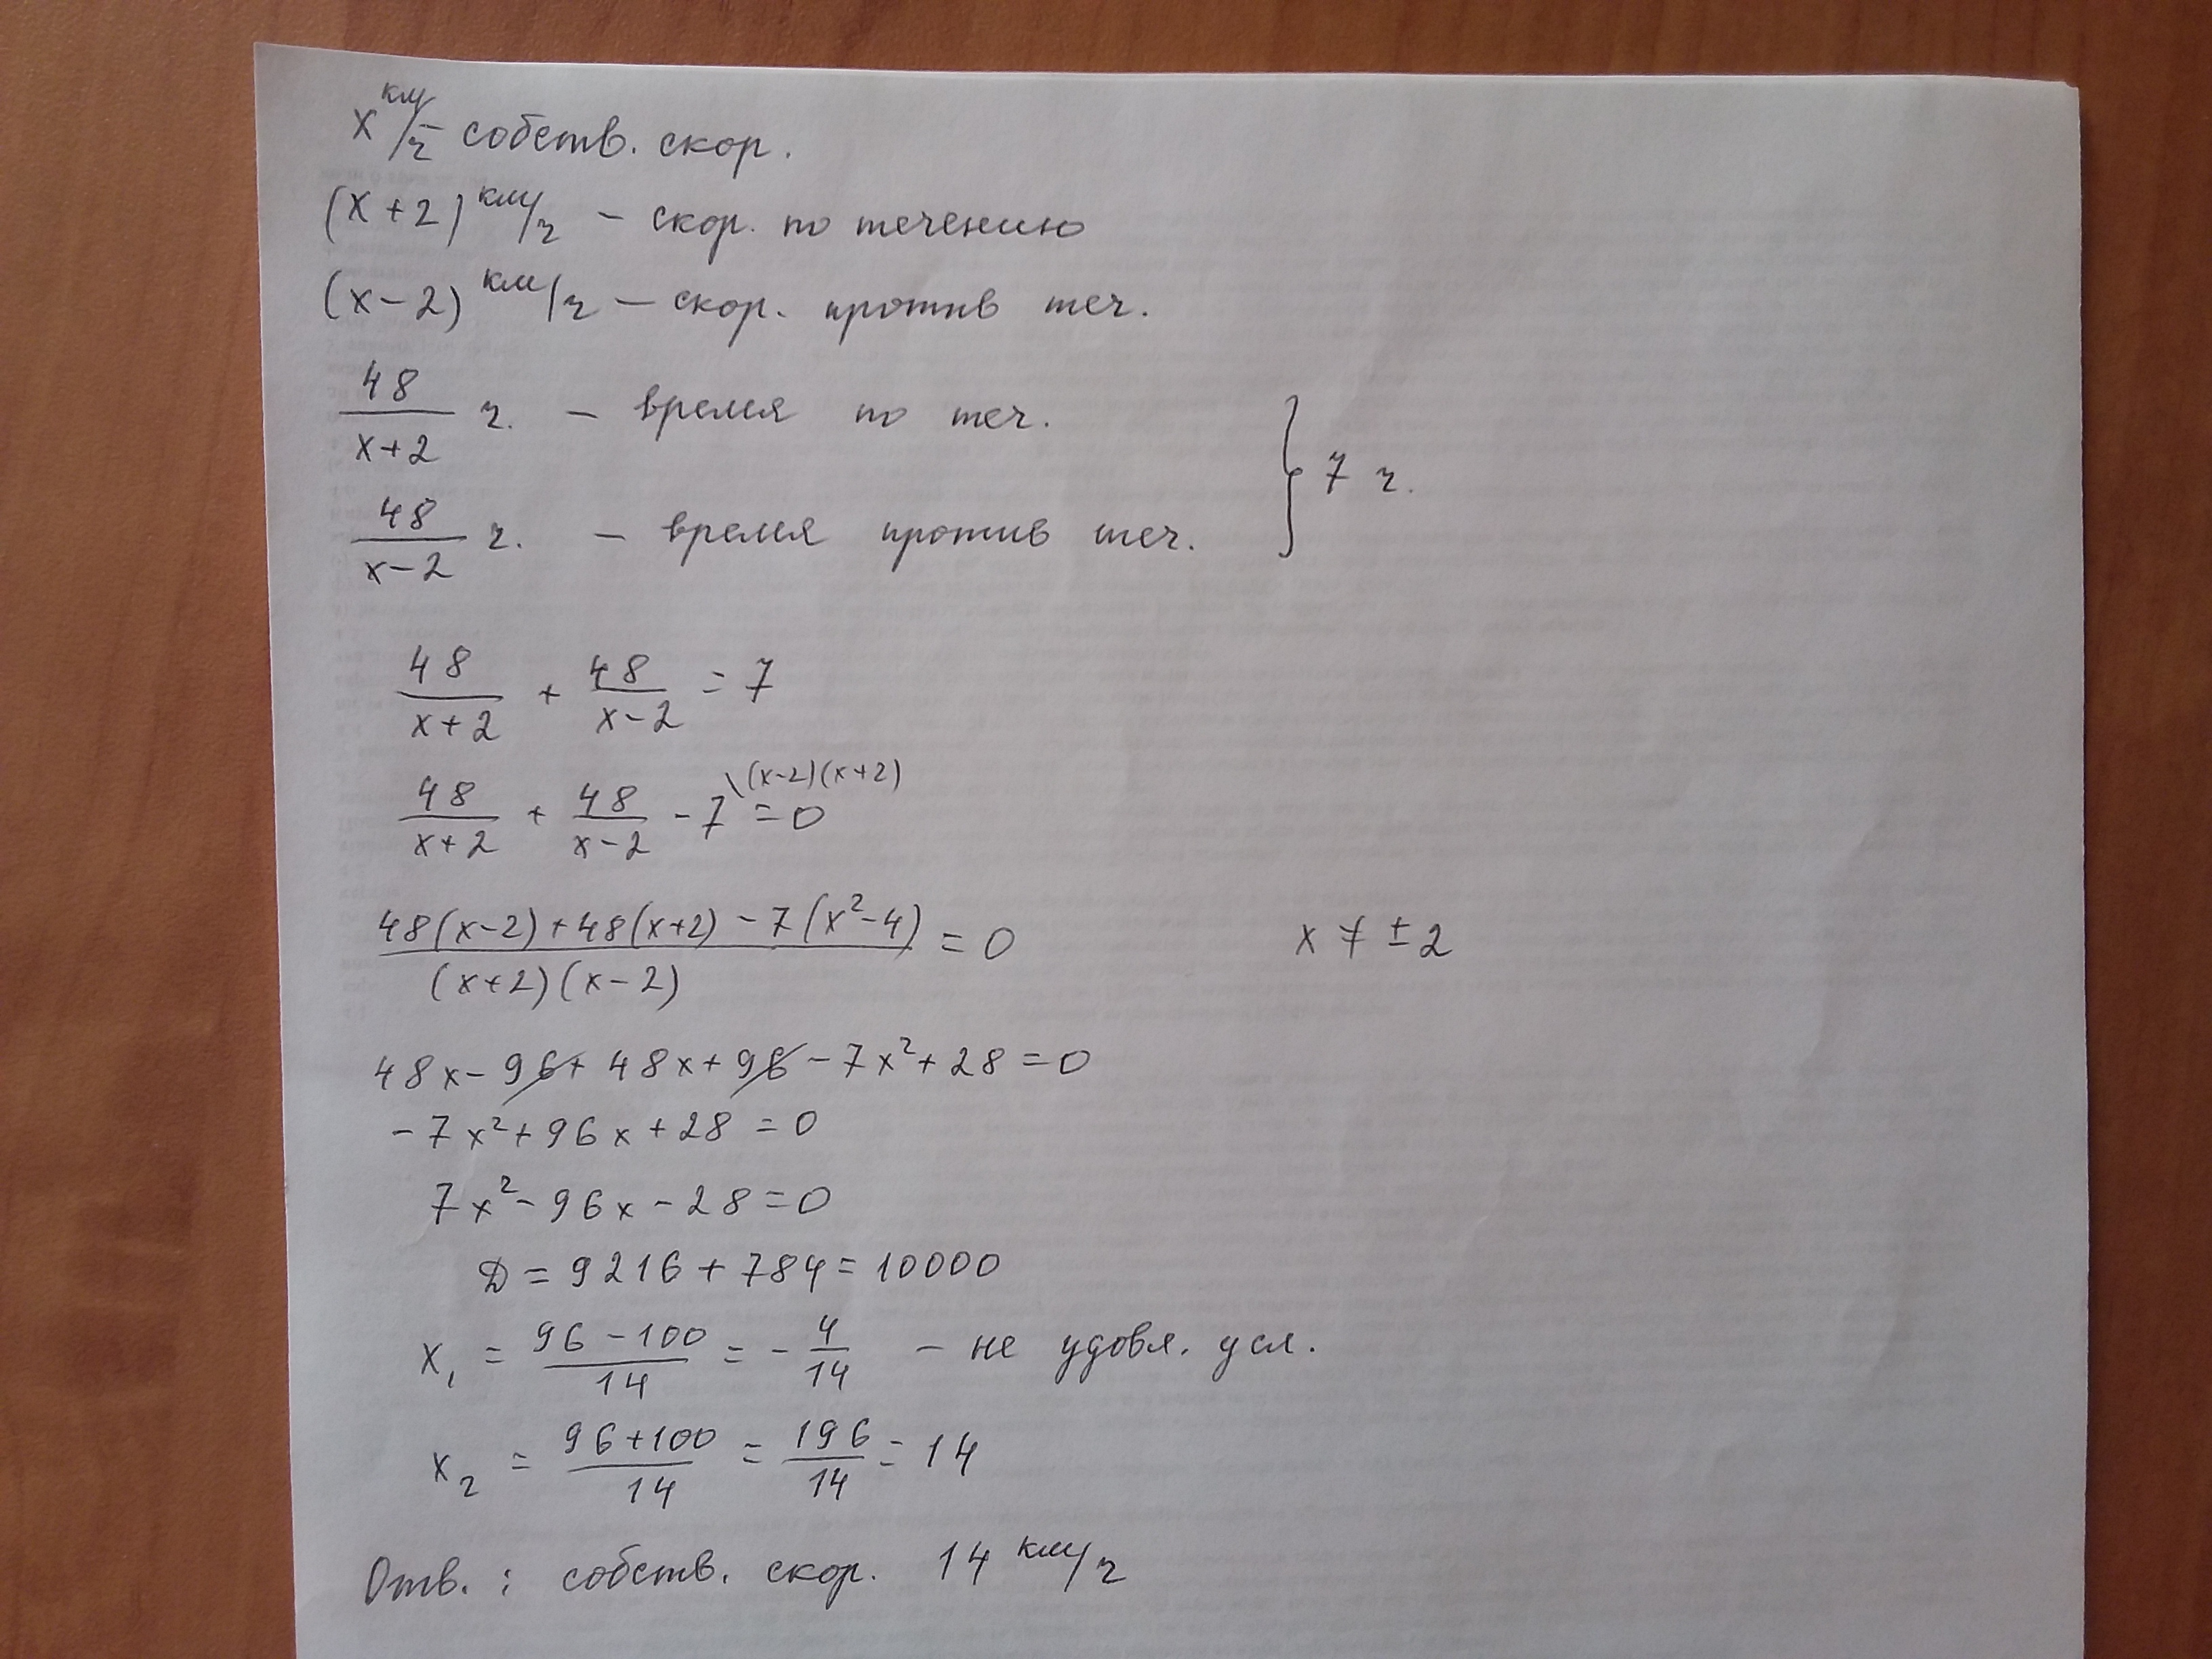 x км/ч – собств. скор.
(x+2) км/ч – скор. по течению
(x-2) км/ч – скор. против теч.
48/(x+2) ч. – время по теч.
48/(x-2) ч. – время против теч. } 7 ч.
48/(x+2) + 48/(x-2) = 7
48/(x+2) + 48/(x-2) - 7 \(x-2)(x+2) = 0
(48(x-2)+48(x+2) - 7(x²-4))/((x+2)(x-2)) = 0 x ≠ ±2
48x - 96 + 48x + 96 - 7x² + 28 = 0
-7x² + 96x + 28 = 0
7x² - 96x - 28 = 0
D = 9216 + 784 = 10000
x₁ = (96-100)/14 = -4/14 – не удовл. усл.
x₂ = (96+100)/14 = 196/14 = 14
Отв.: собств. скор. 14 км/ч